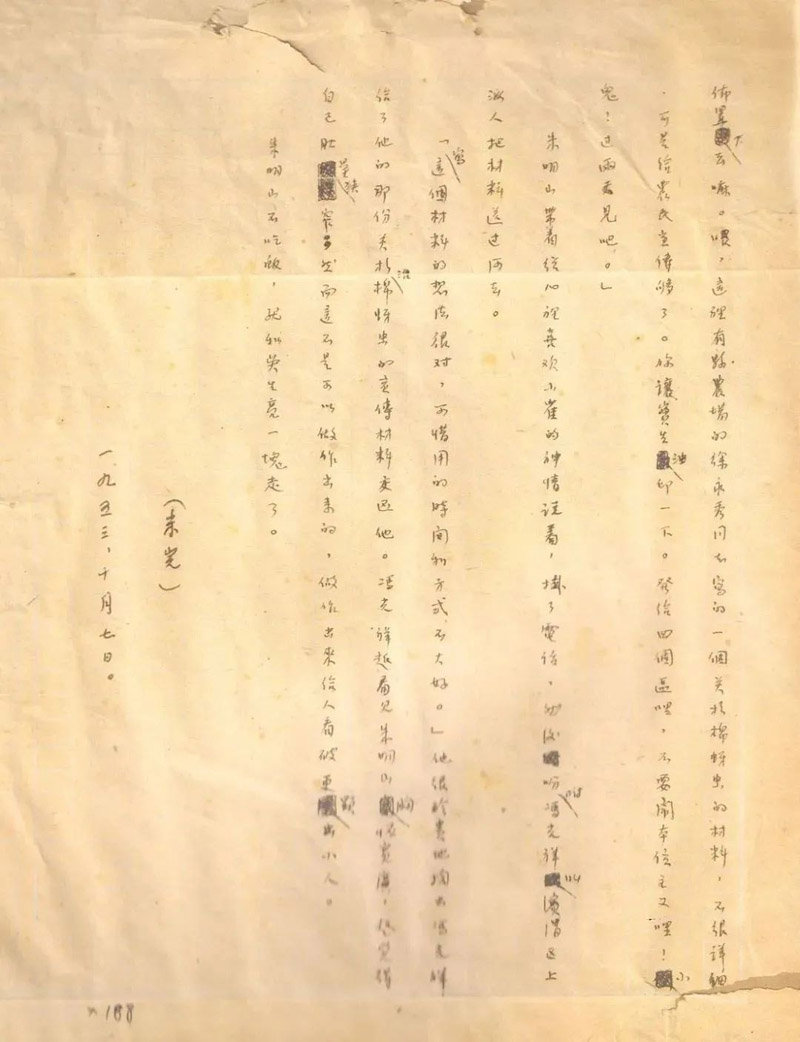 佈置下去嘛。喂，這裡有縣農場的徐永秀同志寫的一個关於棉蚜虫的材料，不很詳細
，可是给農民宣傳够了。你讓寳生油印一下。發给四個區哩，不要鬧本位主义哩！小
鬼！过兩天見吧。」
朱明山帶着從心裡喜欢小崔的神情説着，掛了電话，然後吩咐馮光祥叫濱渭区上
派人把材料送过河去。
「寫這個材料的想法很对，可惜用的時间和方式不大好。」他很珍貴地掏出馮光祥
给了他的那份关於治棉蚜虫的宣傳材料交还他。馮光祥越看见朱明山胸怀寬廣，越覺得
自己肚量狹窄了。然而這不是可以做作出来的，做作出來给人看破更顯出小人。
朱明山不吃飯，就和吳生亮一塊走了。
（未完）
一九五三、十月七日。
188